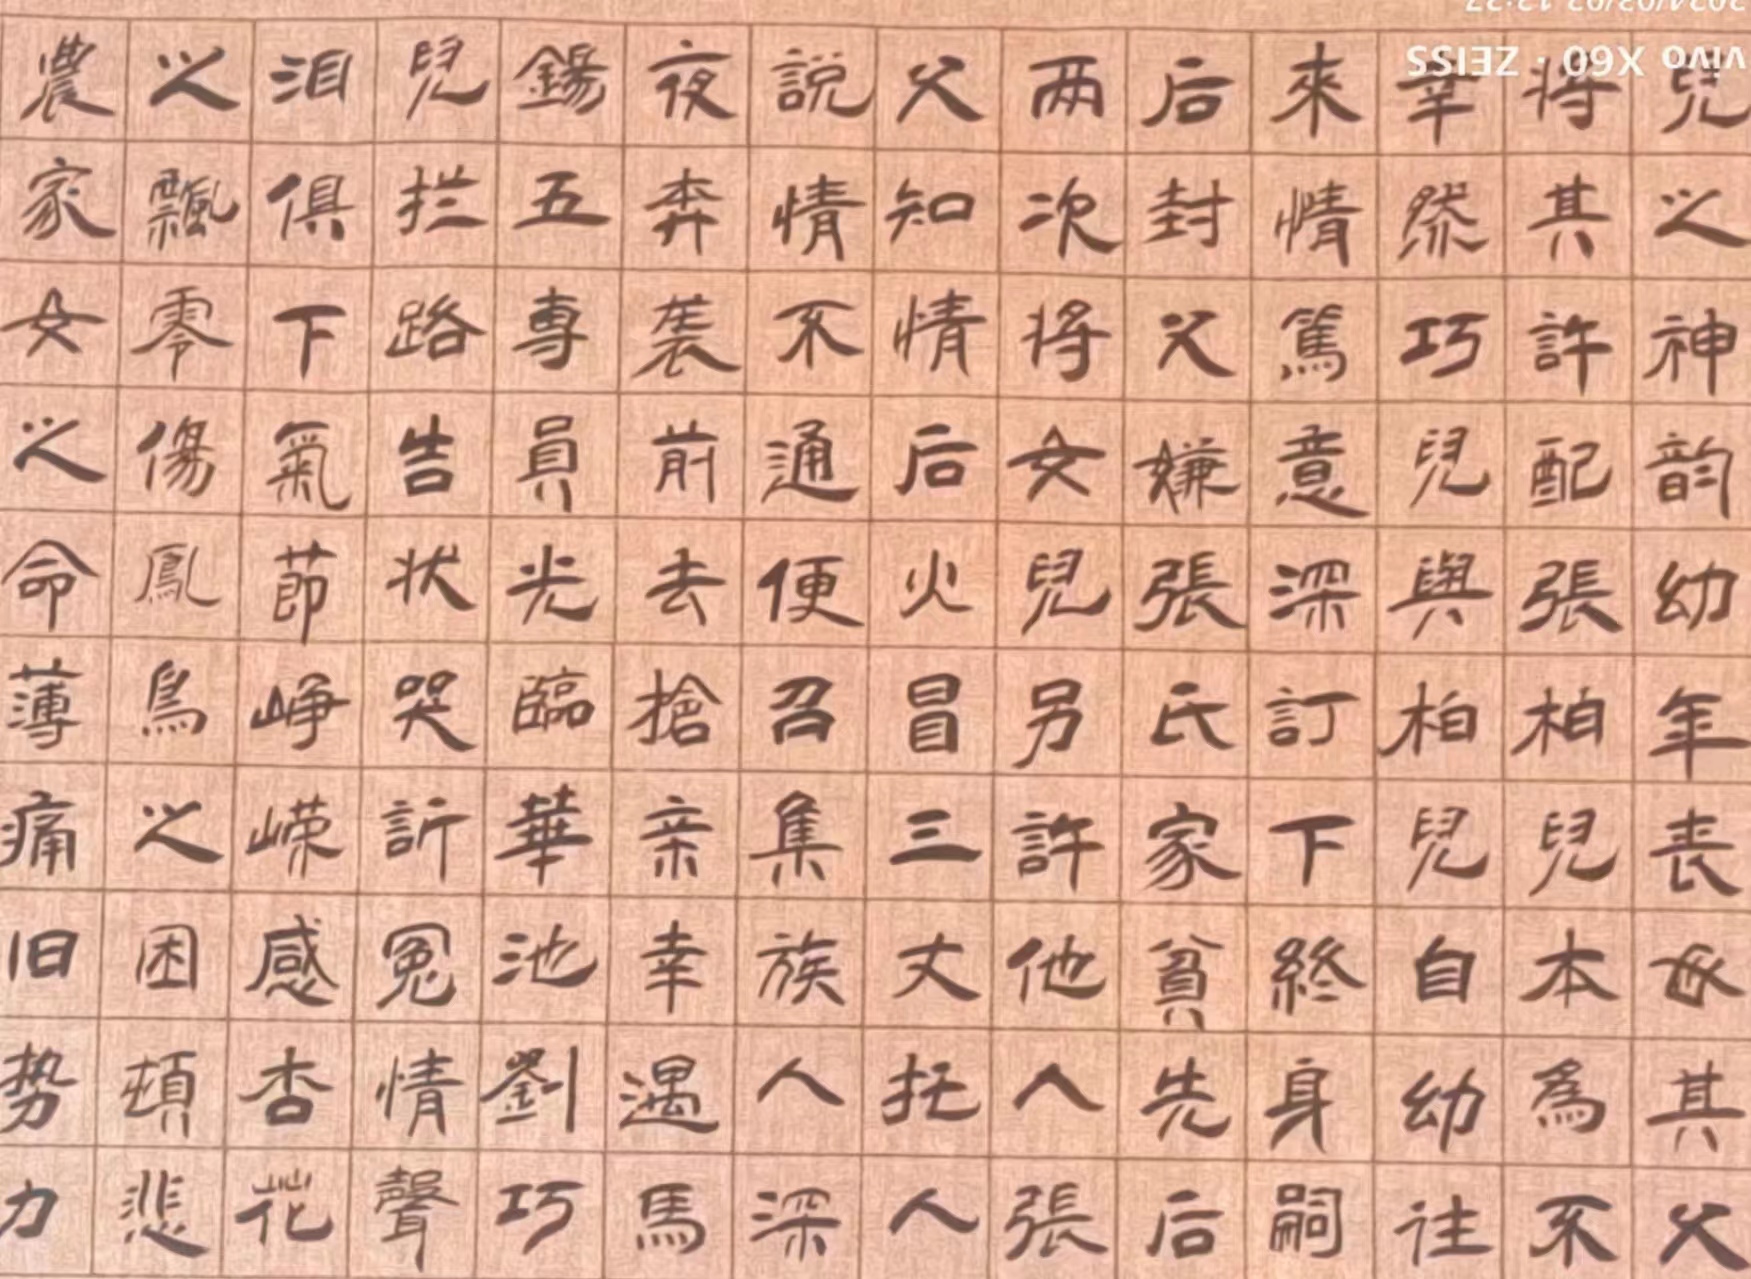 兒之神韵幼年丧母其父
將其許配張柏兒本為不
幸然巧兒與柏兒自幼往
來情篤意深訂下終身嗣
后封父嫌張氏家貧先后
两次將女兒另許他人張
父知情后火冒三丈托人
説情不通便召集族人深
夜奔袭前去搶亲幸遇馬
錫五專員光臨華池劉巧
兒拦路告状哭訴冤情聲
泪俱下氣節峥嵘感杏花
之飄零傷鳳鳥之困頓悲
農家女之命薄痛旧势力
vivo X60 · ZEISS